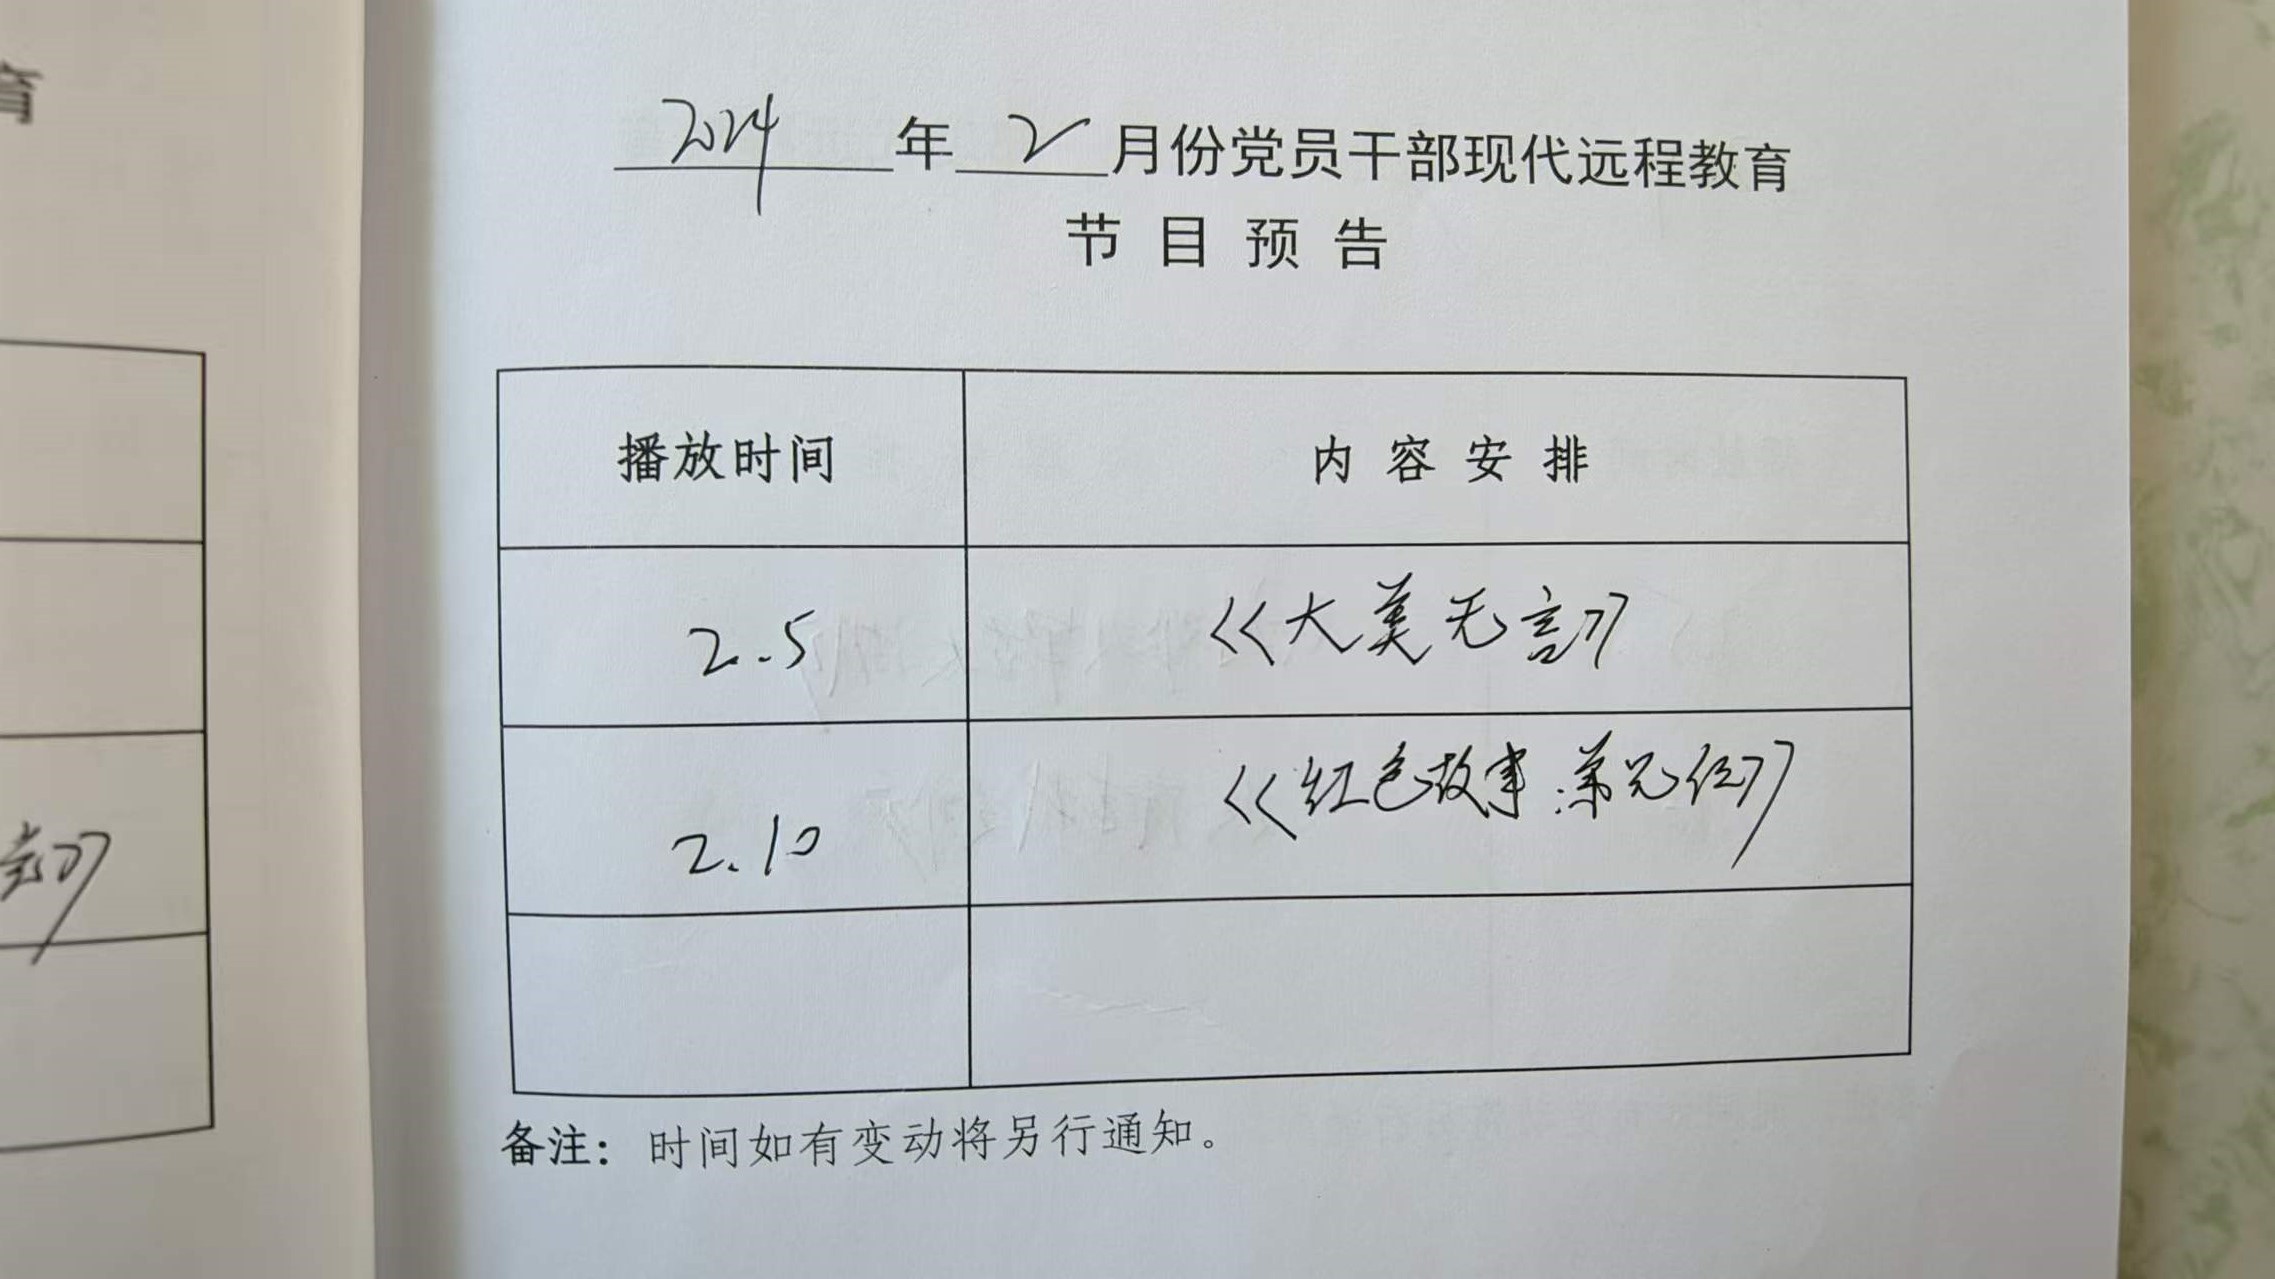 育
2024年2月份党员干部现代远程教育
节目预告
播放时间 内容安排
2.5 《大美无言》
2.10 《红色故事:萧克任》
备注：时间如有变动将另行通知。